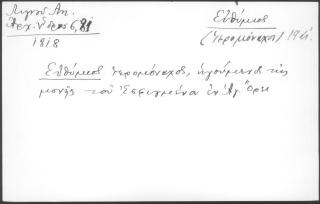 Λιγνοῦ Ἀπ.
Ἀρχ. Ὕδρας 6, 81
1818
Εὐθύμιος
(Ἱερομόναχος)
Εὐθύμιος ἱερομόναχος, ἡγούμενος τῆς
μονῆς τοῦ Ἐσφιγμένου ἐν Ἁγ. Ὄρει